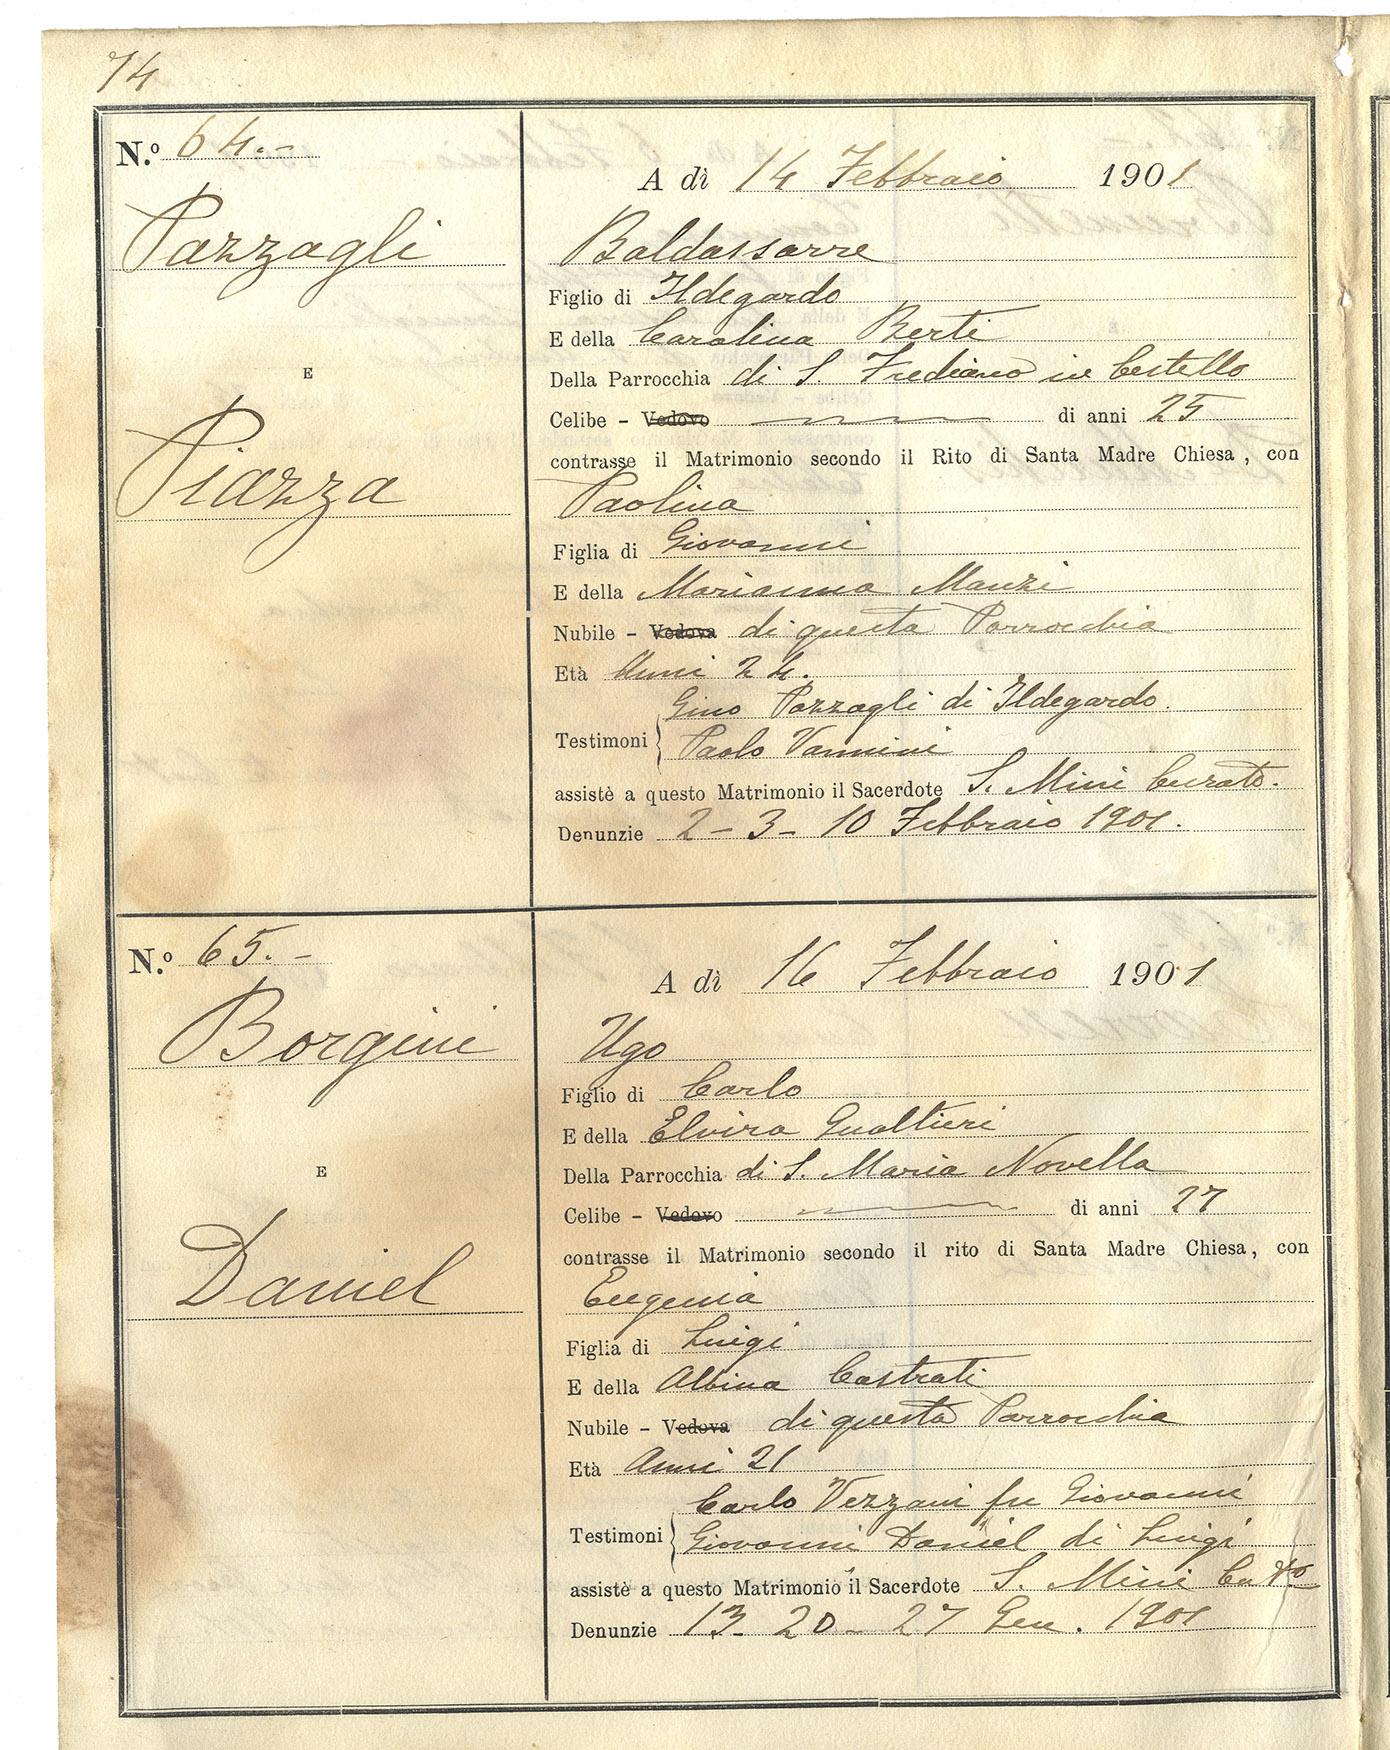 74
N.º 64.-
Pazzagli
E
Piazza
A dì 14 Febbraio 1901
Baldassarre
Figlio di Ildegardo
E della Carolina Berti
Della Parrocchia di S. Frediano in Cestello
Celibe - Vedovo di anni 25
contrasse il Matrimonio secondo il Rito di Santa Madre Chiesa, con
Paolina
Figlia di Giovanni
E della Marianna Manzi
Nubile - Vedova di questa Parrocchia
Età Anni 24.
Gino Pazzagli di Ildegardo.
Testimoni
Paolo Vannini
assistè a questo Matrimonio il Sacerdote S. Mini Curato.
Denunzie 2 - 3 - 10 Febbraio 1901.
N.º 65.-
Borgini
E
Daniel
A dì 16 Febbraio 1901
Ugo
Figlio di Carlo
E della Elvira Gualtieri
Della Parrocchia di S. Maria Novella
Celibe - Vedovo di anni 27
contrasse il Matrimonio secondo il rito di Santa Madre Chiesa, con
Eugenia
Figlia di Luigi
E della Albina Castrati
Nubile - Vedova di questa Parrocchia
Età Anni 21
Carlo Vezzani fu Giovanni
Testimoni
Giovanni Daniel di Luigi
assistè a questo Matrimonio il Sacerdote S. Mini
Denunzie 13 - 20 - 27 Gen. 1901